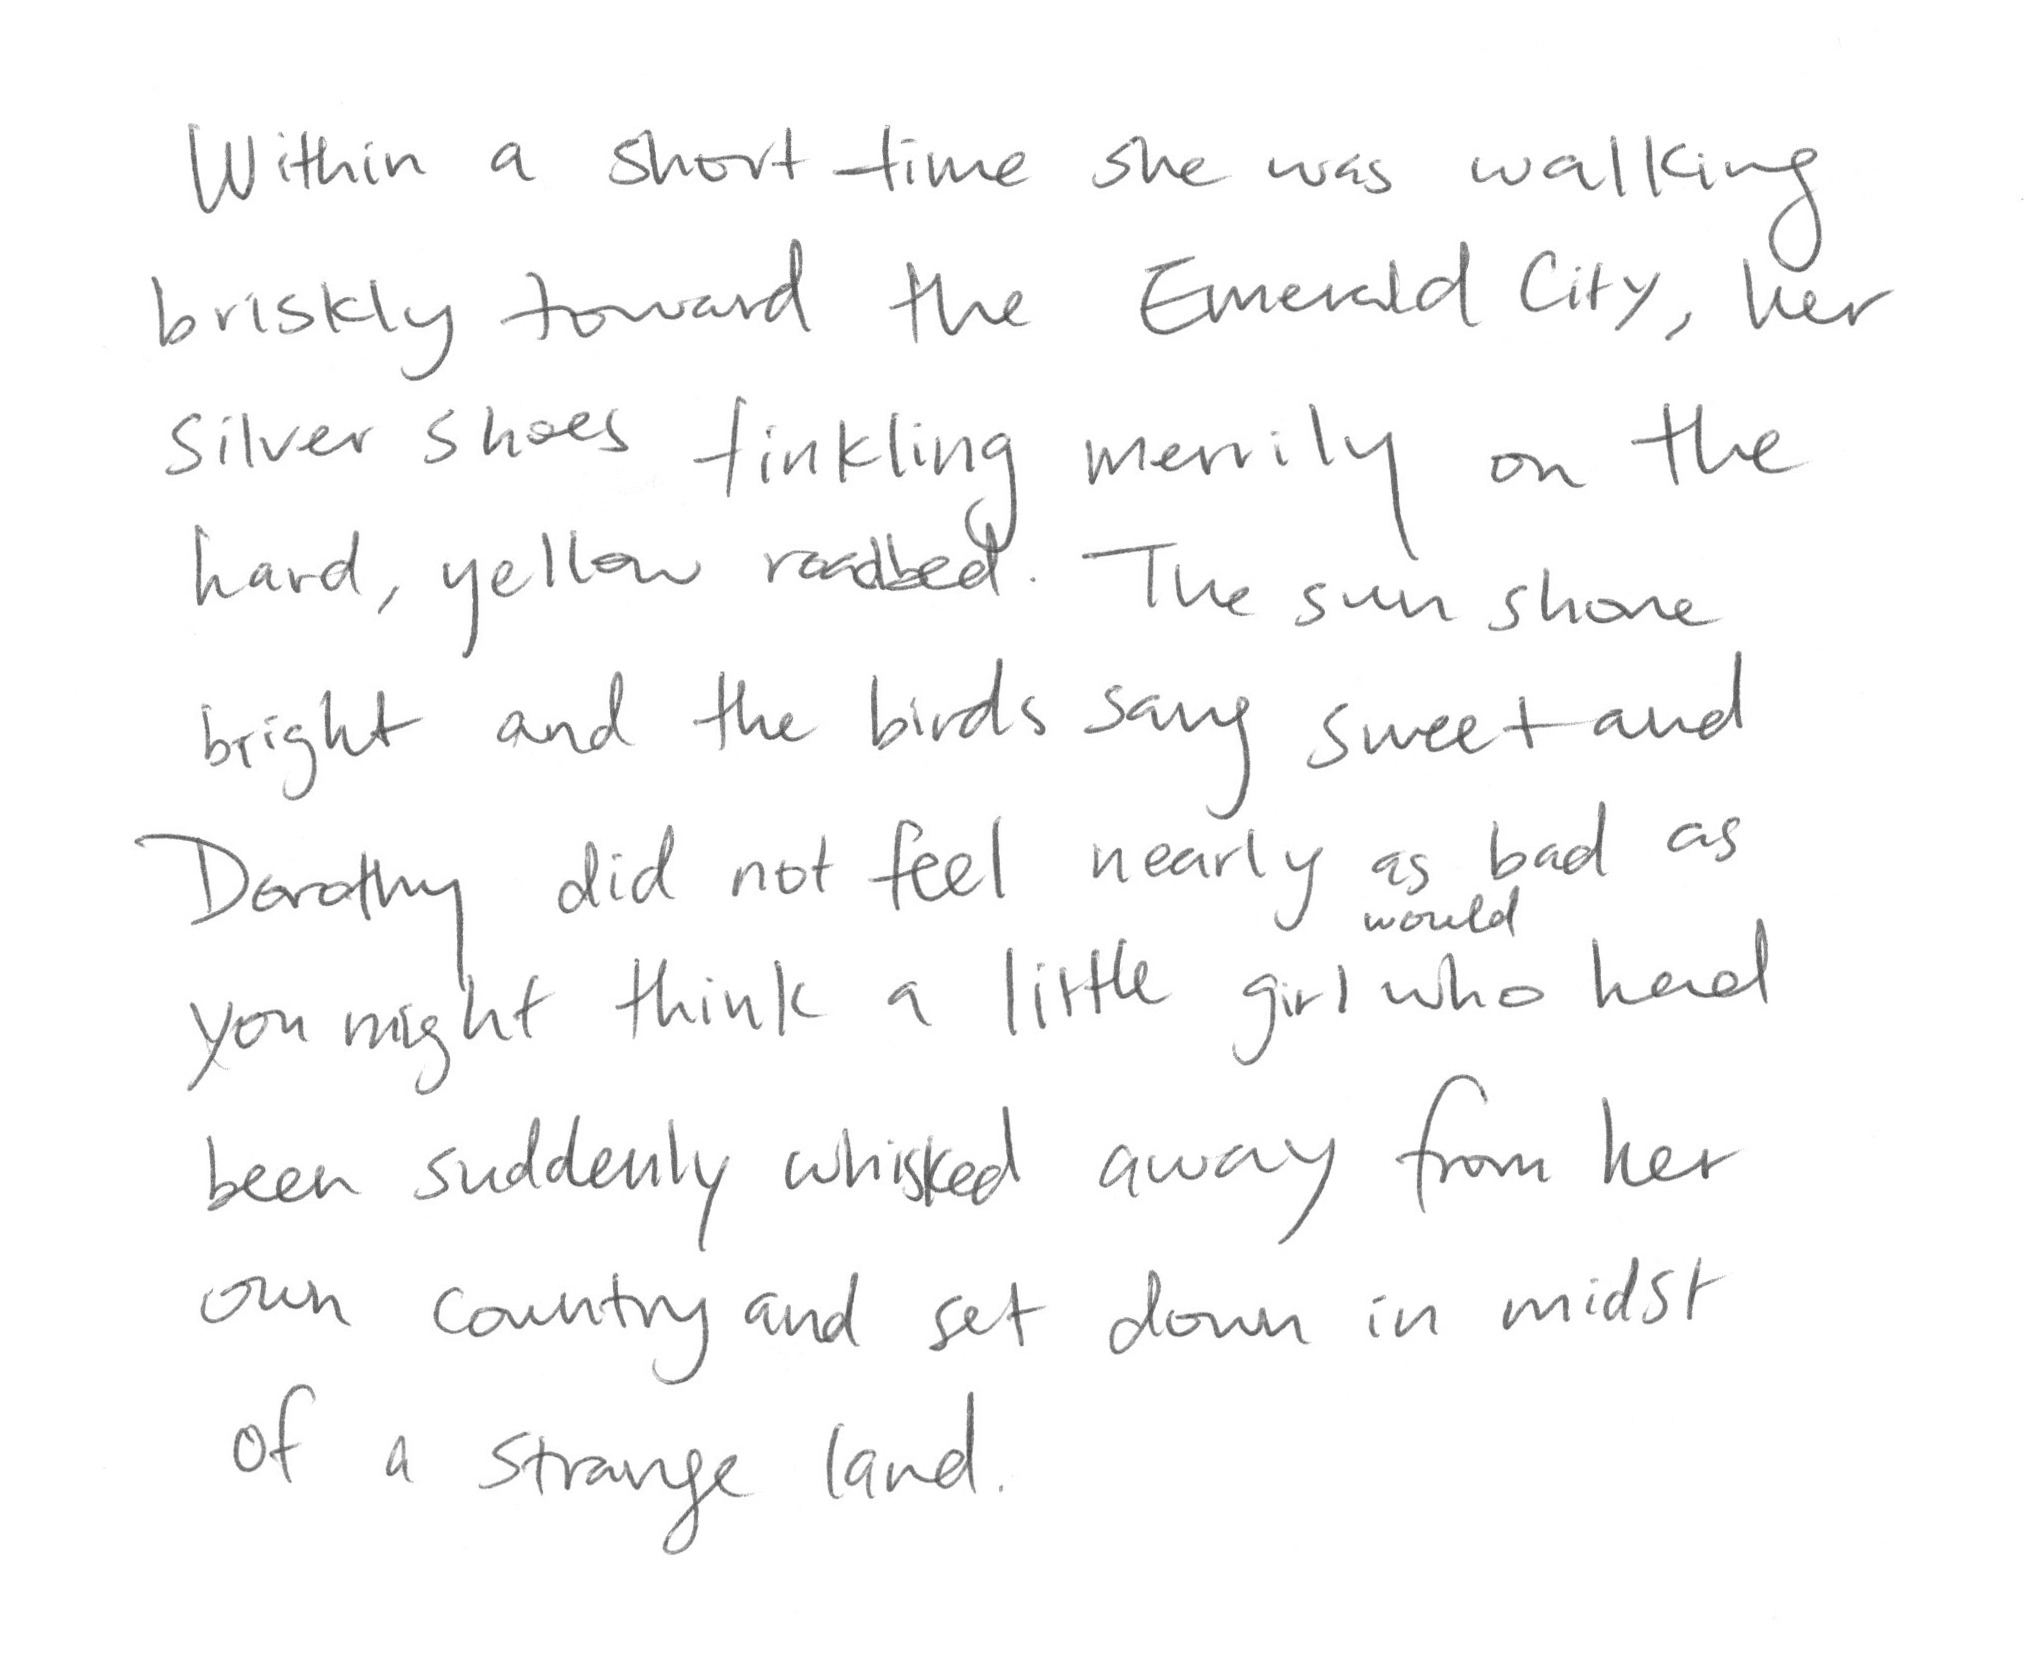 Within a short time she was walking
briskly toward the Emerald City, her
silver shoes tinkling merrily on the
hard, yellow roadbed. The sun shone
bright and the birds sang sweet and
Dorothy did not feel nearly as bad as
would
you might think a little girl who had
been suddenly whisked away from her
own country and set down in midst
of a strange land.